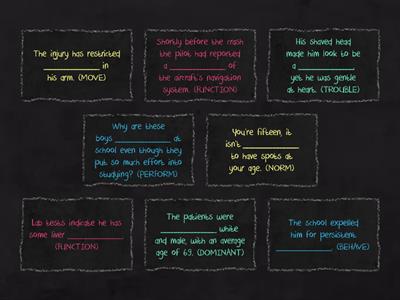 The injury has restricted
____________ in
his arm. (MOVE)
Shortly before the crash
the pilot had reported
a ____________ of
the aircraft's navigation
system. (FUNCTION)
His shaved head
made him look to be
a ____________
yet he was gentle
at heart. (TROUBLE)
Why are these
boys ____________ at
school even though they
put so much effort into
studying? (PERFORM)
You're fifteen, it
isn't ____________
to have spots at
your age. (NORM)
Lab tests indicate he has
some liver ____________.
(FUNCTION)
The patients were
____________ white
and male, with an average
age of 69. (DOMINANT)
The school expelled
him for persistent
____________. (BEHAVE)